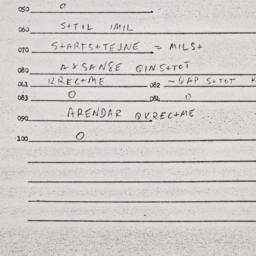 050 0
060 S+TIL IMIL
070 S+ARTS+TEJNE = MILS+
080 AXSANGE QINS+TOT
081 KREC+ME 082 - GAP S+TOT K
083 0 084 0
090 ARENDAR QVREC+ME
100 0